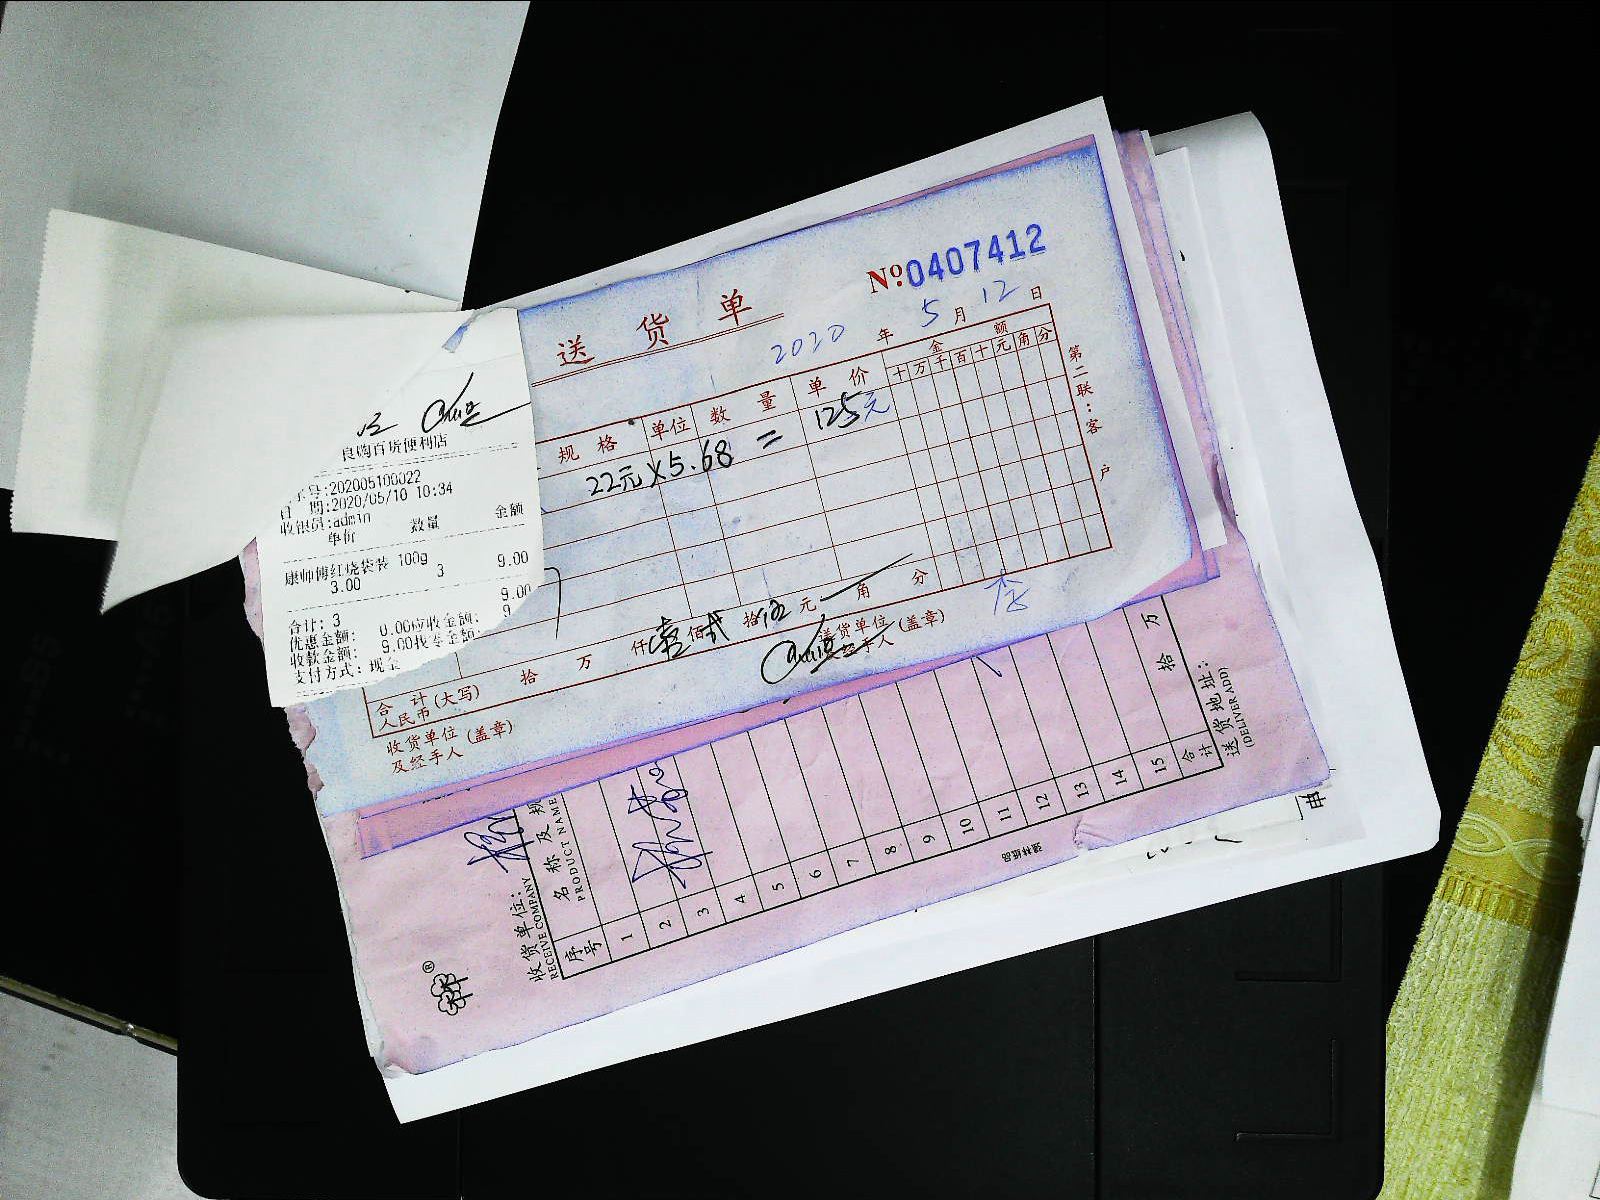 良购百货便利店
号:202005100022
日 期:2020/05/10 10:34
收银员:admin
单价 数量 金额
康师傅红烧袋装 100g
3.00 3 9.00
合计: 3 9.00
优惠金额: 0.00应收金额: 9
收款金额: 9.00找零金额:
支付方式: 现金
送货单
No:0407412
2020 年 5 月 12 日
规格 单位 数量 单价 金额
十 万 千 百 十 元 角 分
22元×5.68 = 125元
第二联:客户
合计(大写)
人民币 拾 万 仟 壹 佰 贰 拾 伍 元 角 分
收货单位(盖章)
及经手人
送货单位(盖章)
经手人
李
收货单位:
RECEIVE COMPANY
序号
名称及规
PRODUCT NAME
1
2
3
4
5
6
7
8
9
10
11
12
13
14
15
合计 拾 万
送货地址:
(DELIVER ADD)
申